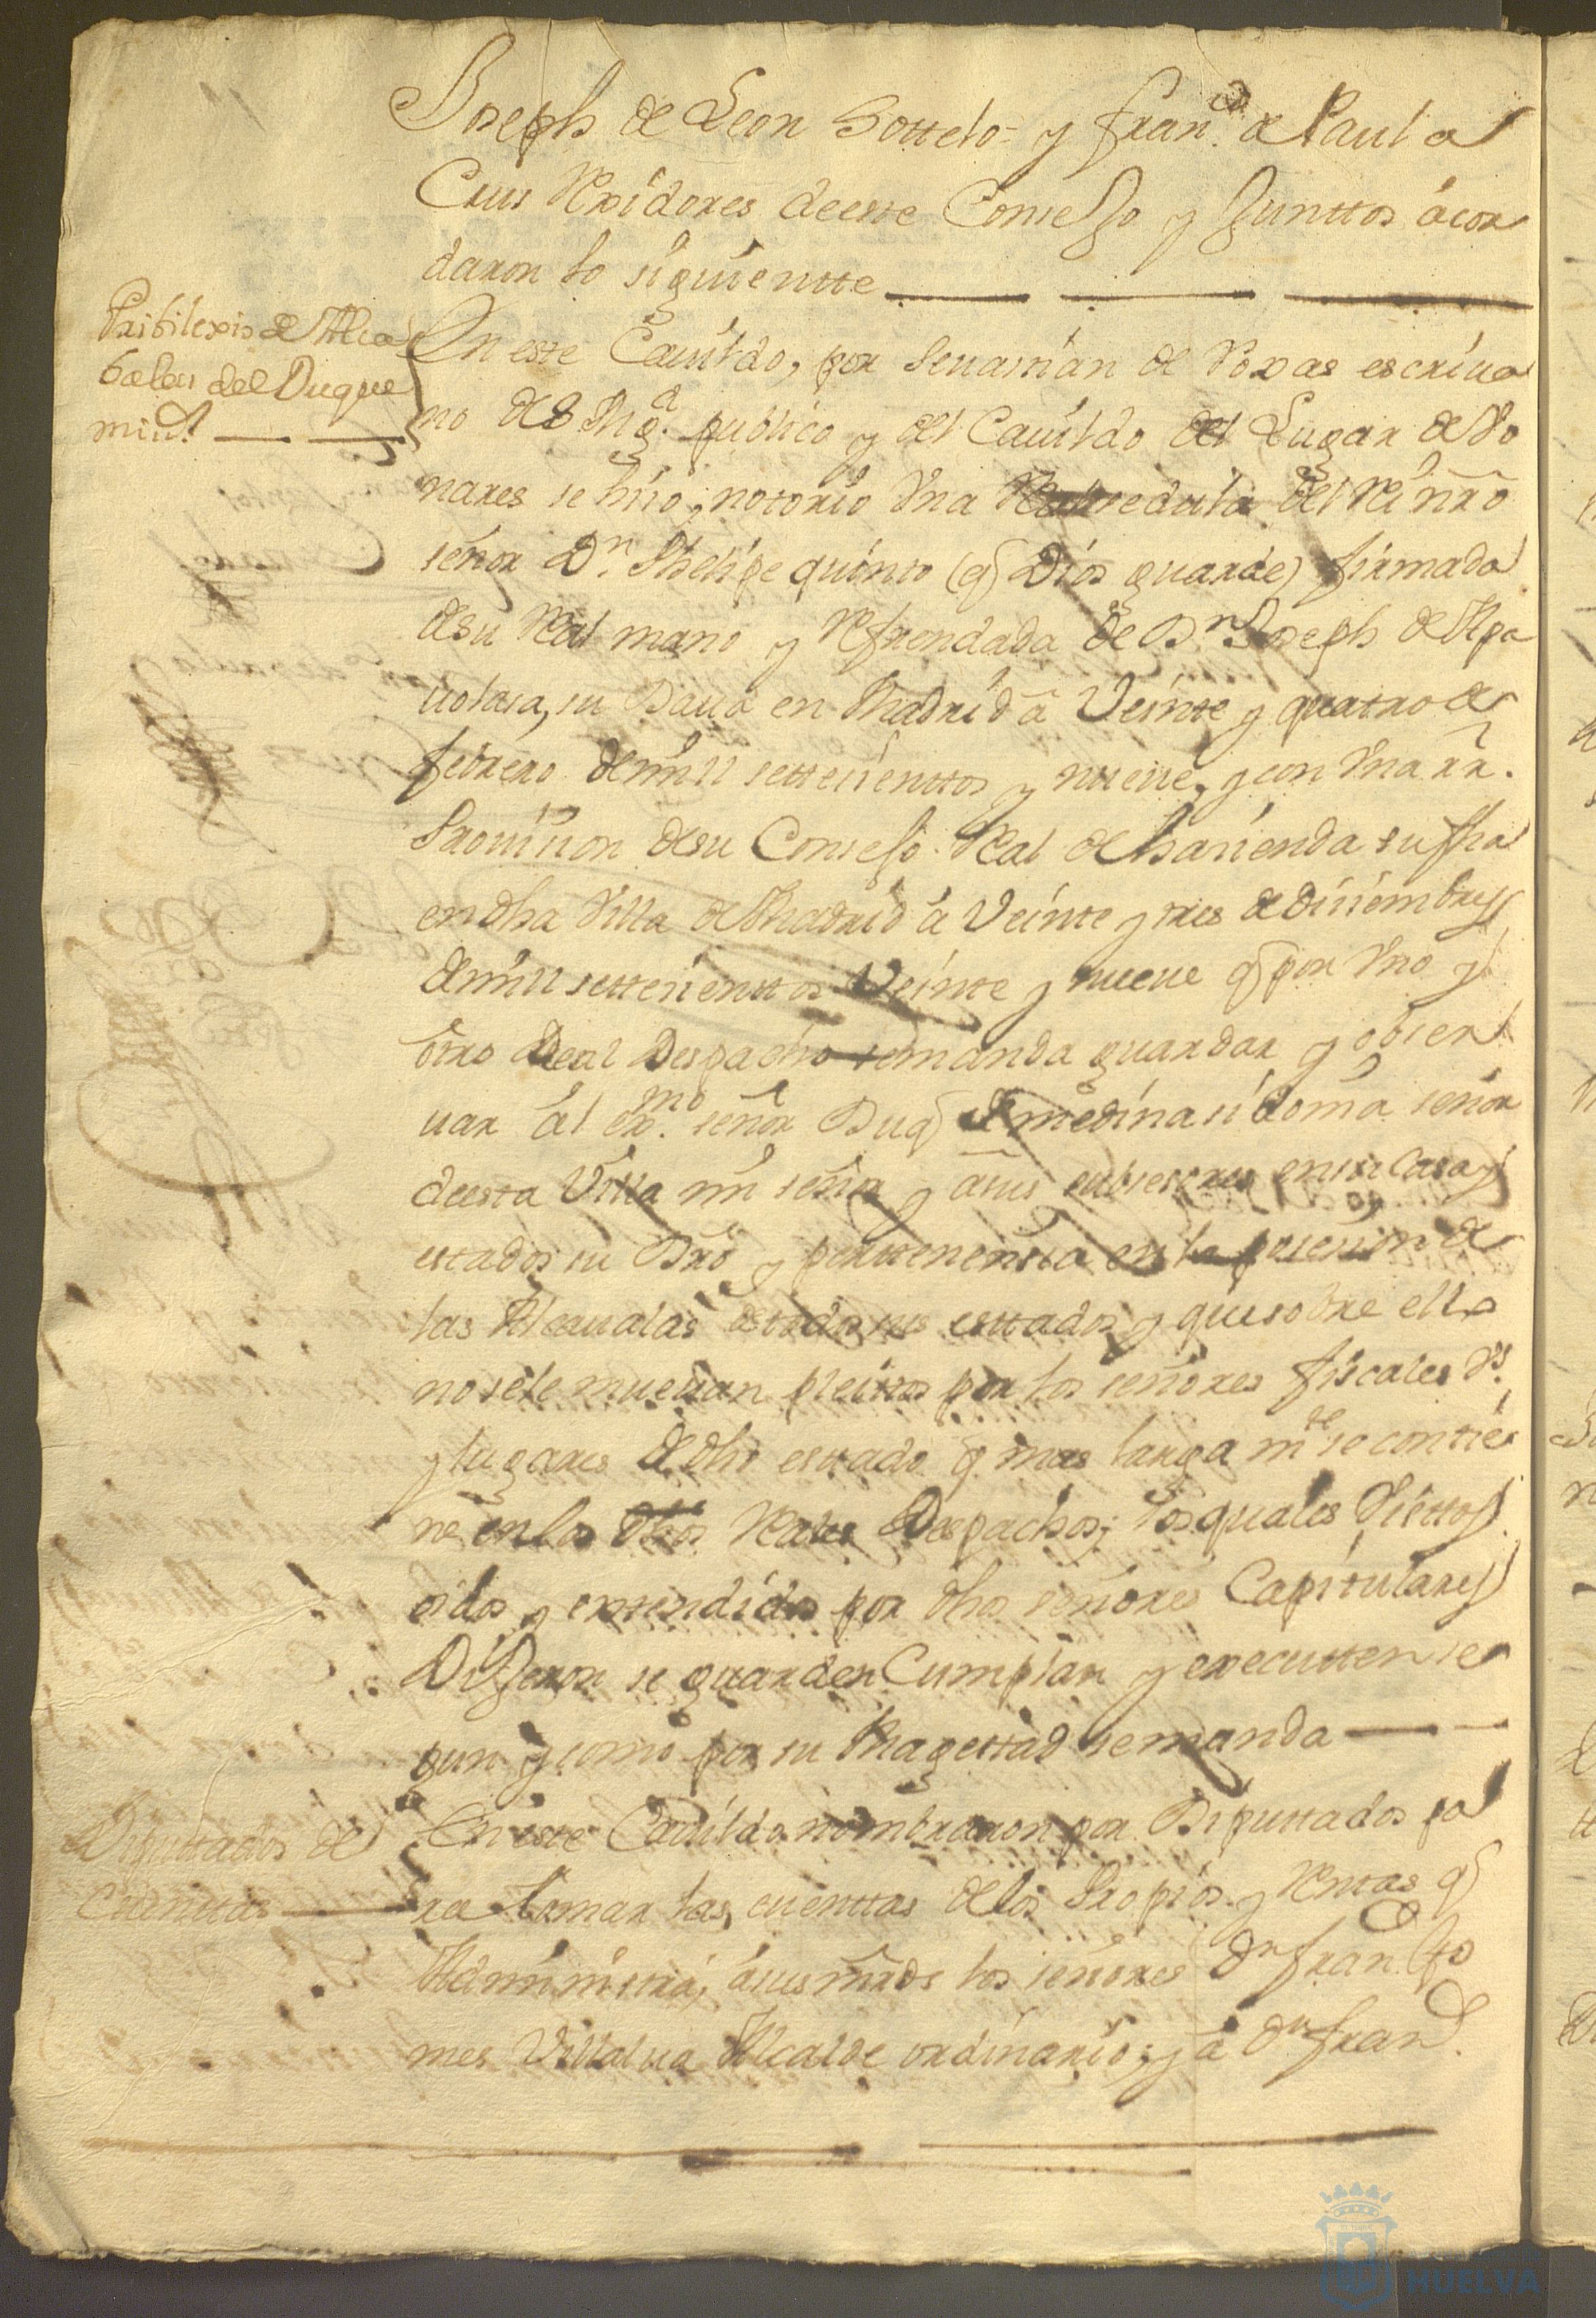 Joseph de Leon Sottelo = y fran.co de Paula
Cruz Rexidores deeste Consejo y Junttos acor
daron lo siguientte
Pribilexio de Alca
balas del Duque
mi s.r
En este Cauildo, por Seuastian de Roxas escriua
no de S Mg.d publico y del Cauildo del Lugar de Bo
nares se hizo notorio Vna Real zedula del Rei nro
señor D.n Phelipe quinto (q Dios guarde) firmada
desu Real mano y Refrendada de D.n Joseph de Apa
uolasa, su Data en Madrid â Veinte y quatro de
febrero demill settezienttos y nueue, y con
Prouision desu Consejo Real de hazienda su fha
en dha Villa de Madrid â Veinte y tres de diziembre
demill settezienttos Veinte y nueue q por Vno y
otro Real Despacho semanda guardar y obser
uar al ex.mo señor Duq de medina sidonia señor
deesta Villa mi señor y asus subsesores ensu Casa y
estados su Dro y perttenensia en la posesion de
las Alcaualas detodos sus esttados y quesobre ello
nosele mueuan pleittos por los señores fiscales
y lugares de dho esttado q mas larga m.te se contie
ne enlos dhos Reales Despachos; los quales Vistos
oidos y entendidos por dhos señores Capitulares
Dijeron se guarden Cumplan y executten se
gun y como por su Magesttad se manda
Diputtados de
Cuenttas
En este Cauildo nombraron por Diputtados pa
ra tomar las cuenttas delos Propios y Rentas q
Administra, asus mrds los señores D.n fran.co Go
mes Villalua Alcalde ordinario; y â D.n fran.co
HUELVA